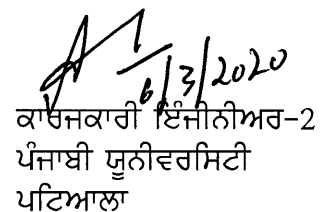 6/3/2020
ਕਾਰਜਕਾਰੀ ਇੰਜੀਨੀਅਰ-2
ਪੰਜਾਬੀ ਯੂਨੀਵਰਸਿਟੀ
ਪਟਿਆਲਾ